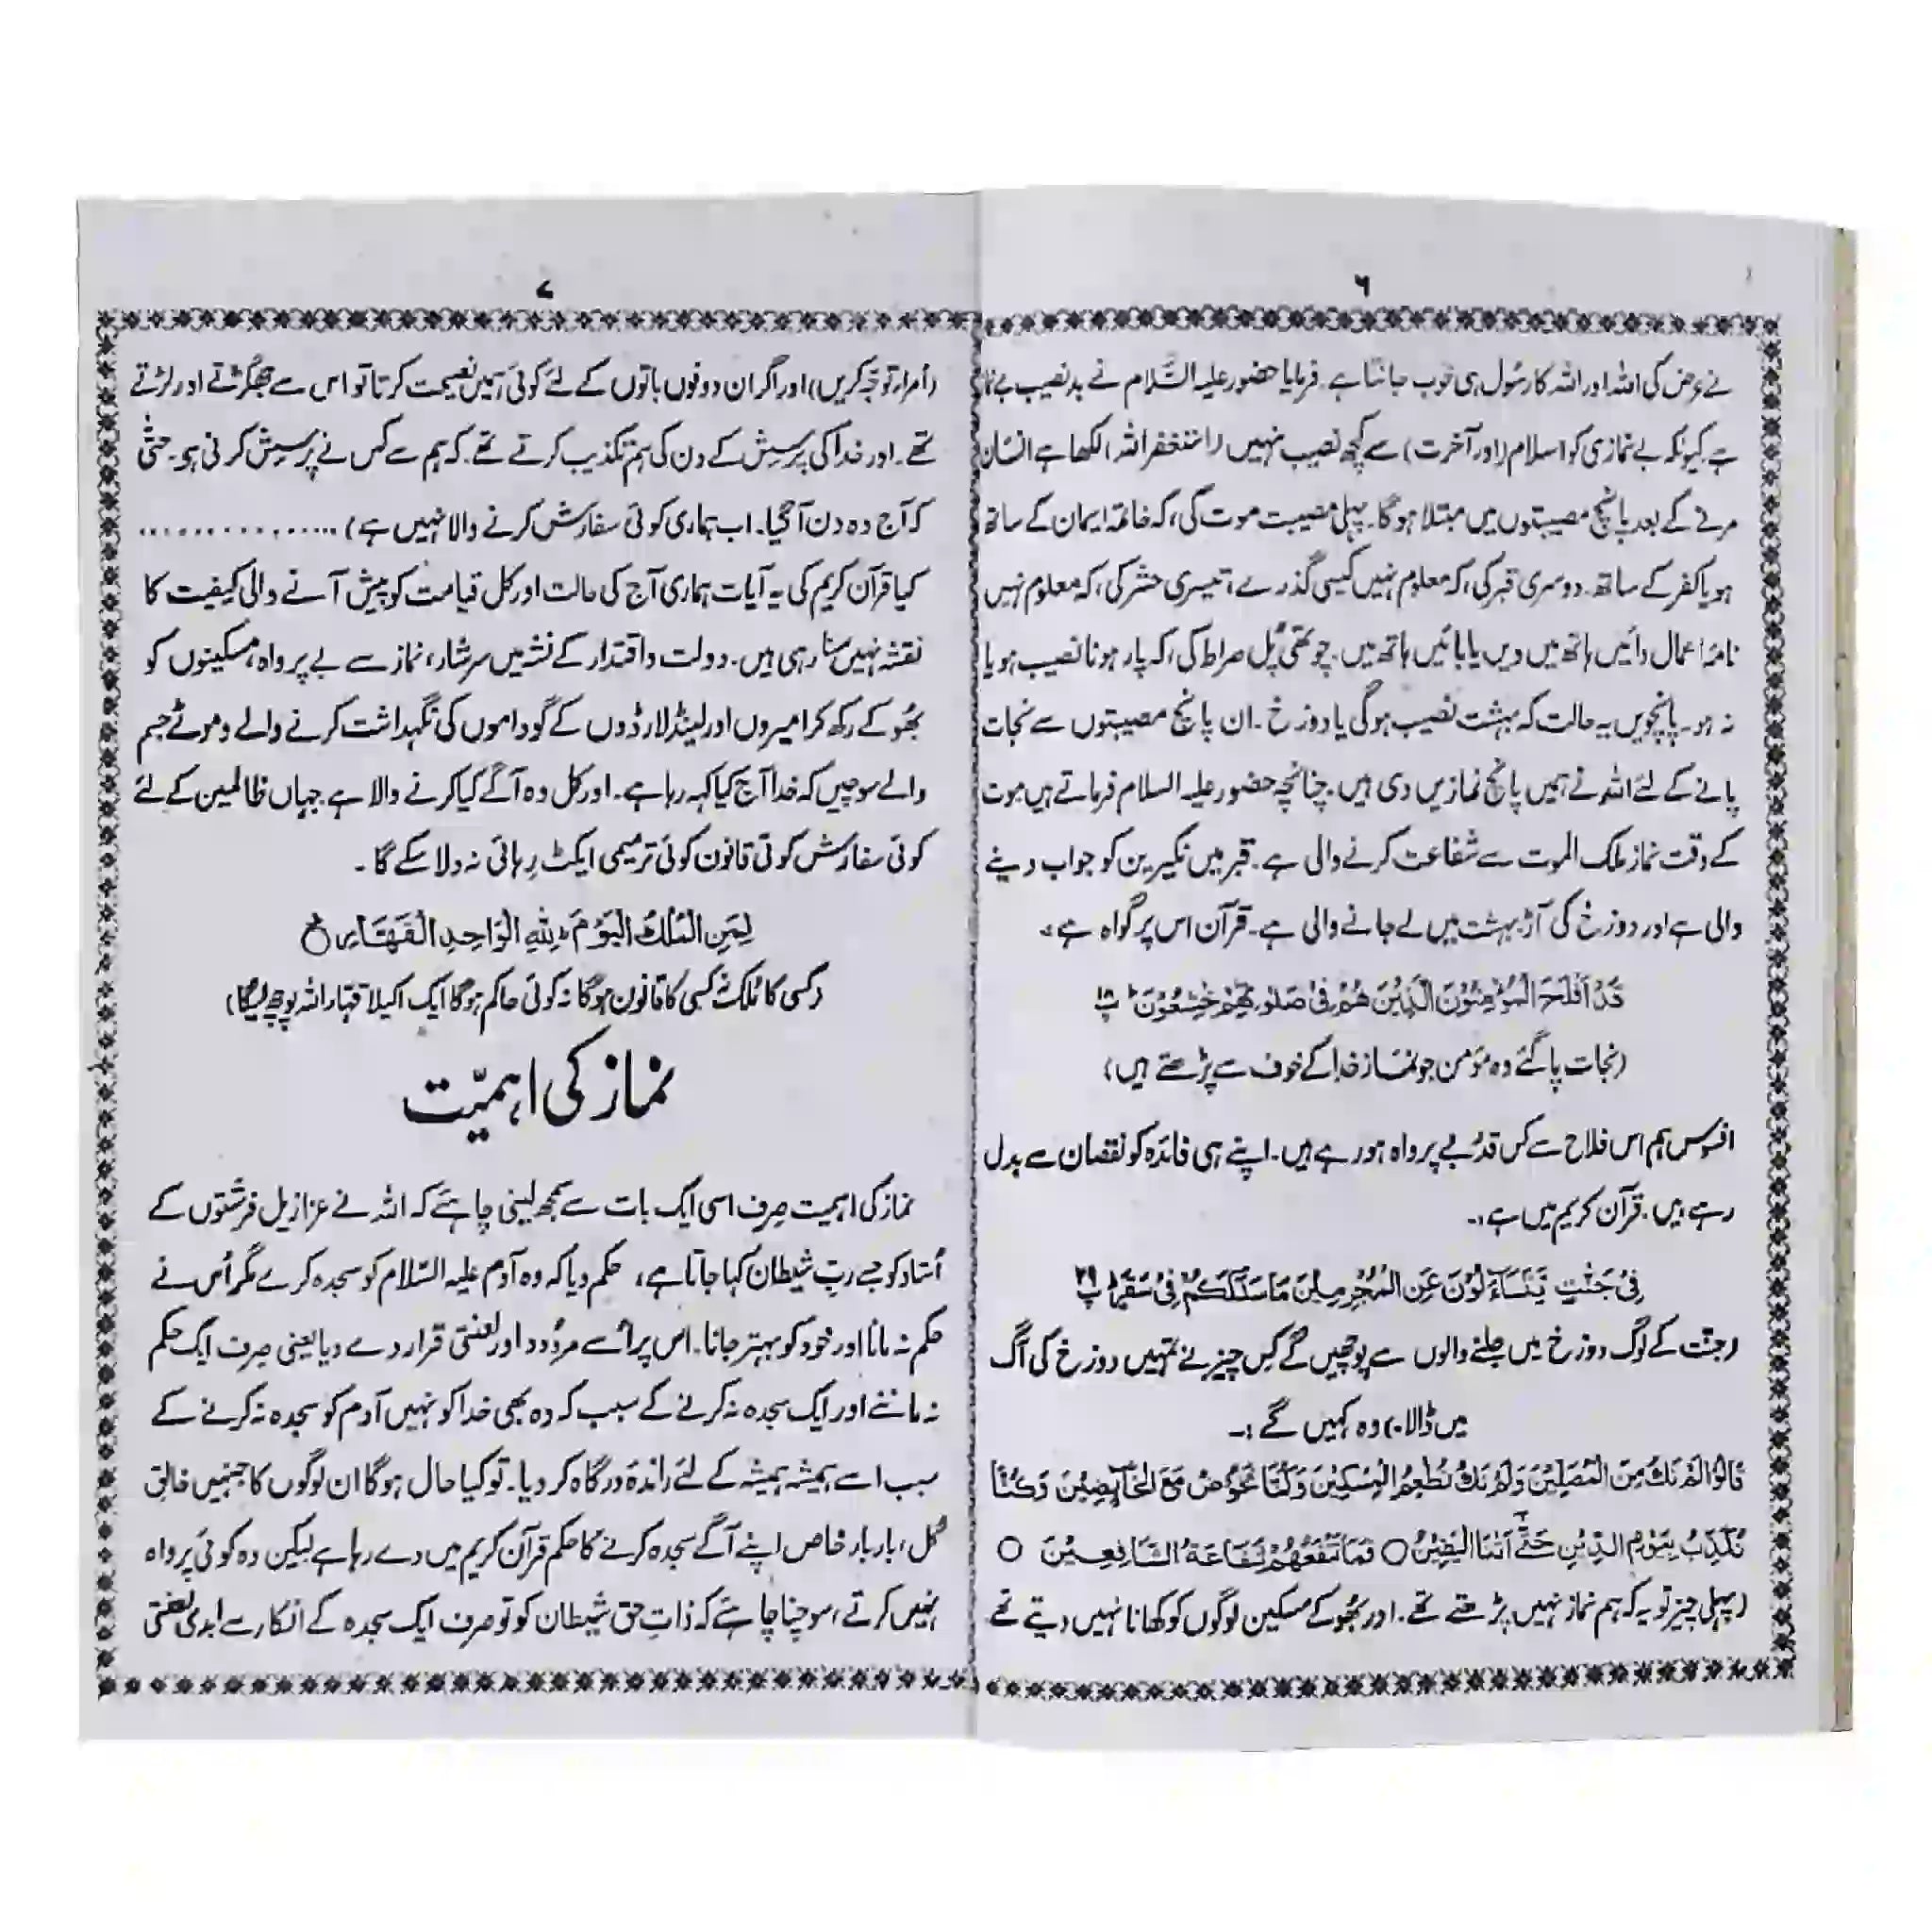 ۶
نے عرض کی اللہ اور اللہ کا رسُول ہی خوب جانتا ہے۔ فرمایا حضور علیہ السَّلام نے بدنصیب بے نما
ہے کیونکہ بے نمازی کو اسلام (اور آخرت) سے کچھ نصیب نہیں (استغفراللہ) لکھا ہے انسان
مرنے کے بعد پانچ مصیبتوں میں مبتلا ہوگا۔ پہلی مصیبت موت کی، کہ خاتمہ ایمان کے ساتھ
ہو یا کفر کے ساتھ۔ دوسری قبر کی، کہ معلوم نہیں کیسی گذرے، تیسری حشر کی، کہ معلوم نہیں
نامۂ اعمال دائیں ہاتھ میں دیں یا بائیں ہاتھ میں۔ چوتھی پُل صراط کی، کہ پار ہونا نصیب ہو یا
نہ ہو۔ پانچویں یہ حالت کہ بہشت نصیب ہوگی یا دوزخ۔ ان پانچ مصیبتوں سے نجات
پانے کے لئے اللہ نے ہمیں پانچ نمازیں دی ہیں۔ چنانچہ حضور علیہ السلام فرماتے ہیں موت
کے وقت نماز ملک الموت سے شفاعت کرنے والی ہے۔ قبر میں نکیرین کو جواب دینے
والی ہے اور دوزخ کی آڑ بہشت میں لے جانے والی ہے۔ قرآن اس پر گواہ ہے :
قَدْ اَفْلَحَ الْمُؤْمِنُوْنَ الَّذِيْنَ هُمْ فِىْ صَلٰوتِهِمْ خٰشِعُوْنَ پ ۱۸
(نجات پا گئے وہ مومن جو نماز خدا کے خوف سے پڑھتے ہیں)
افسوس ہم اس فلاح سے کس قدر بے پرواہ ہو رہے ہیں۔ اپنے ہی فائدہ کو نقصان سے بدل
رہے ہیں۔ قرآن کریم میں ہے :۔
فِىْ جَنّٰتٍ يَتَسَآءَلُوْنَ عَنِ الْمُجْرِمِيْنَ مَا سَلَكَكُمْ فِىْ سَقَرَ پ ۲۹
(جنّت کے لوگ دوزخ میں جلنے والوں سے پوچھیں گے کِس چیز نے تمہیں دوزخ کی آگ
میں ڈالا۔) وہ کہیں گے :۔
قَالُوْا لَمْ نَكُ مِنَ الْمُصَلِّيْنَ وَلَمْ نَكُ نُطْعِمُ الْمِسْكِيْنَ وَكُنَّا نَخُوْضُ مَعَ الْخَآئِضِيْنَ وَكُنَّا
نُكَذِّبُ بِيَوْمِ الدِّيْنِ حَتّٰى اَتٰنَا الْيَقِيْنُ ○ فَمَا تَنْفَعُهُمْ شَفَاعَةُ الشَّافِعِيْنَ ○
(پہلی چیز تو یہ کہ ہم نماز نہیں پڑھتے تھے۔ اور بھُوکے مسکین لوگوں کو کھانا نہیں دیتے تھے
۷
(اُمراء توجّہ کریں) اور اگر ان دونوں باتوں کے لئے کوئی ہمیں نصیحت کرتا تو اس سے جھگڑتے اور لڑتے
تھے۔ اور خدا کی پرسِش کے دن کی ہم تکذیب کرتے تھے۔ کہ ہم سے کس نے پرسِش کرنی ہو۔ حتّٰی
کہ آج وہ دن آ گیا۔ اب ہماری کوئی سفارش کرنے والا نہیں ہے) ...............
کیا قرآن کریم کی یہ آیات ہماری آج کی حالت اور کل قیامت کو پیش آنے والی کیفیت کا
نقشہ نہیں سنا رہی ہیں۔ دولت و اقتدار کے نشہ میں سرشار، نماز سے بے پرواہ، مسکینوں کو
بھُوکے رکھ کر امیروں اور لینڈ لارڈوں کے گوداموں کی نگہداشت کرنے والے و موٹے جسم
والے سوچیں کہ خدا آج کیا کہہ رہا ہے۔ اور کل وہ آگے کیا کرنے والا ہے جہاں ظالمین کے لئے
کوئی سفارش کوئی قانون کوئی ترمیمی ایکٹ رہائی نہ دلا سکے گا۔
لِمَنِ الْمُلْكُ الْيَوْمَ لِلّٰهِ الْوَاحِدِ الْقَهَّارِ ○
(کسی کا مُلک نہ کسی کا قانون ہوگا نہ کوئی حاکم ہوگا ایک اکیلا قہار اللہ پوچھ لیگا)
نماز کی اہمیّت
نماز کی اہمیت صِرف اسی ایک بات سے سمجھ لینی چاہئے کہ اللہ نے عزازیل فرشتوں کے
اُستاد کو جسے اب شیطان کہا جاتا ہے، حکم دیا کہ وہ آدم علیہ السّلام کو سجدہ کرے مگر اُس نے
حکم نہ مانا اور خود کو بہتر جانا۔ اس پر اُسے مردُود اور لعنتی قرار دے دیا یعنی صِرف ایک حکم
نہ ماننے اور ایک سجدہ نہ کرنے کے سبب کہ وہ بھی خدا کو نہیں آدم کو سجدہ نہ کرنے کے
سبب اسے ہمیشہ ہمیشہ کے لئے راندۂ درگاہ کر دیا۔ تو کیا حال ہوگا ان لوگوں کا جنہیں خالق
کُل، بار بار خاص اپنے آگے سجدہ کرنے کا حکم قرآن کریم میں دے رہا ہے لیکن وہ کوئی پرواہ
نہیں کرتے، سوچنا چاہئے کہ ذاتِ حق شیطان کو تو صرف ایک سجدہ کے انکار سے ابدی لعنتی